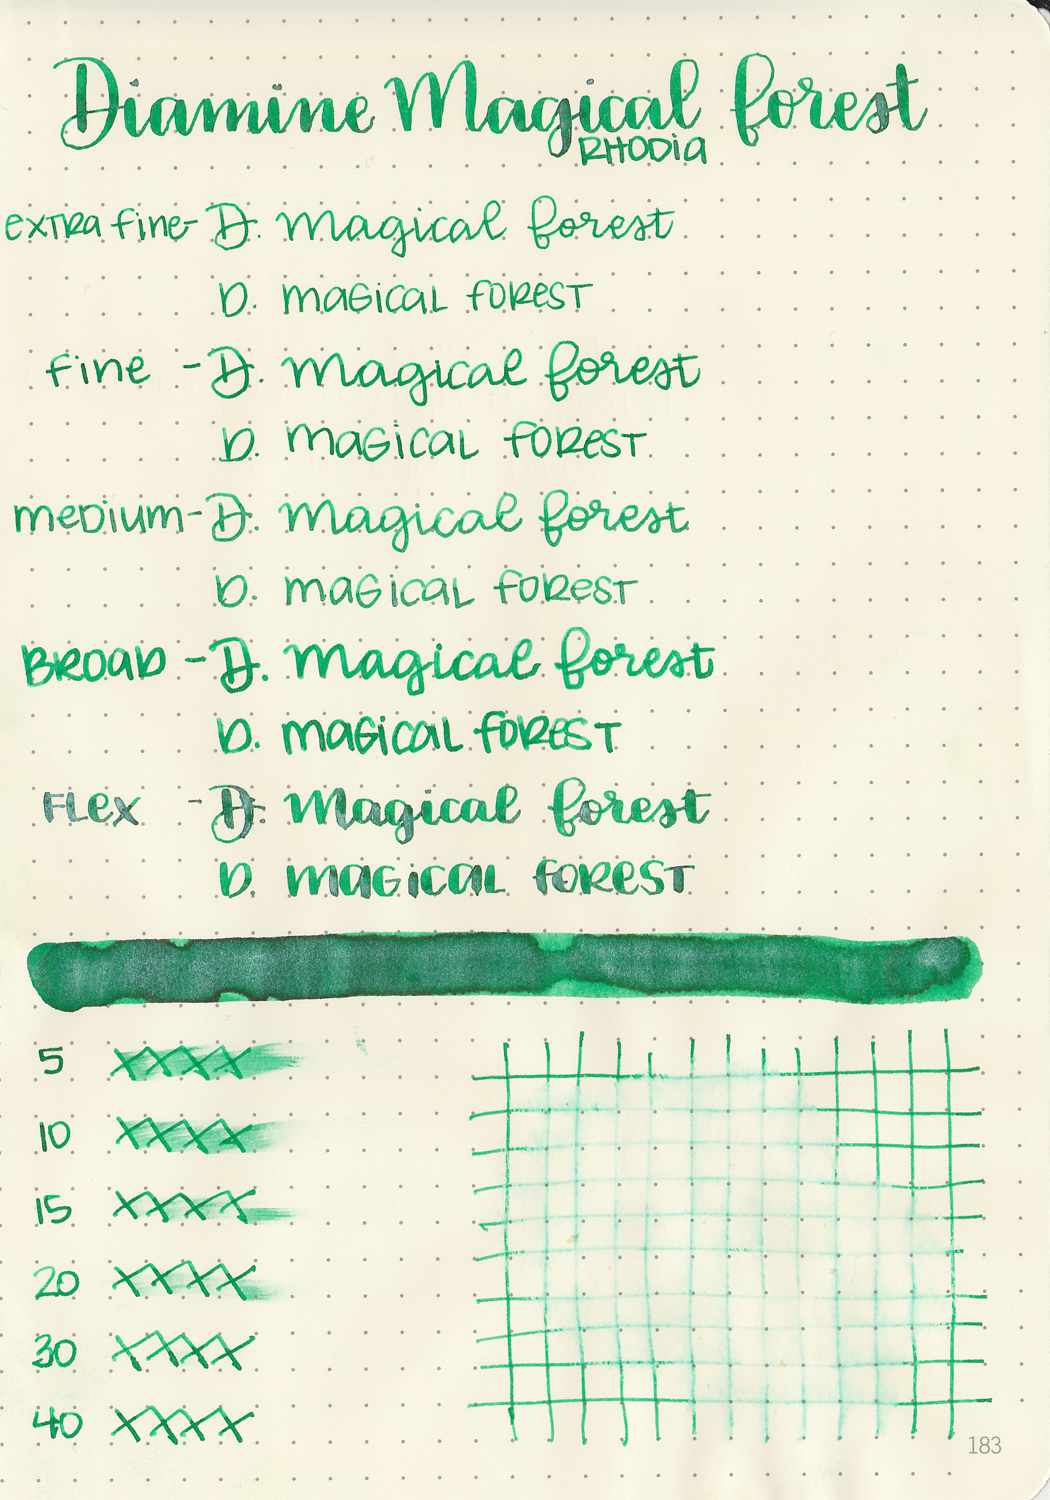 Diamine Magical forest
RHODIA
extra fine - D. Magical forest
D. MAGICAL FOREST
fine - D. Magical forest
D. MAGICAL FOREST
medium - D. Magical forest
D. MAGICAL FOREST
BROAD - D. Magical forest
D. MAGICAL FOREST
FLEX - D. Magical forest
D. MAGICAL FOREST
5 XXXX
10 XXXX
15 XXXX
20 XXXX
30 XXXX
40 XXXX
183